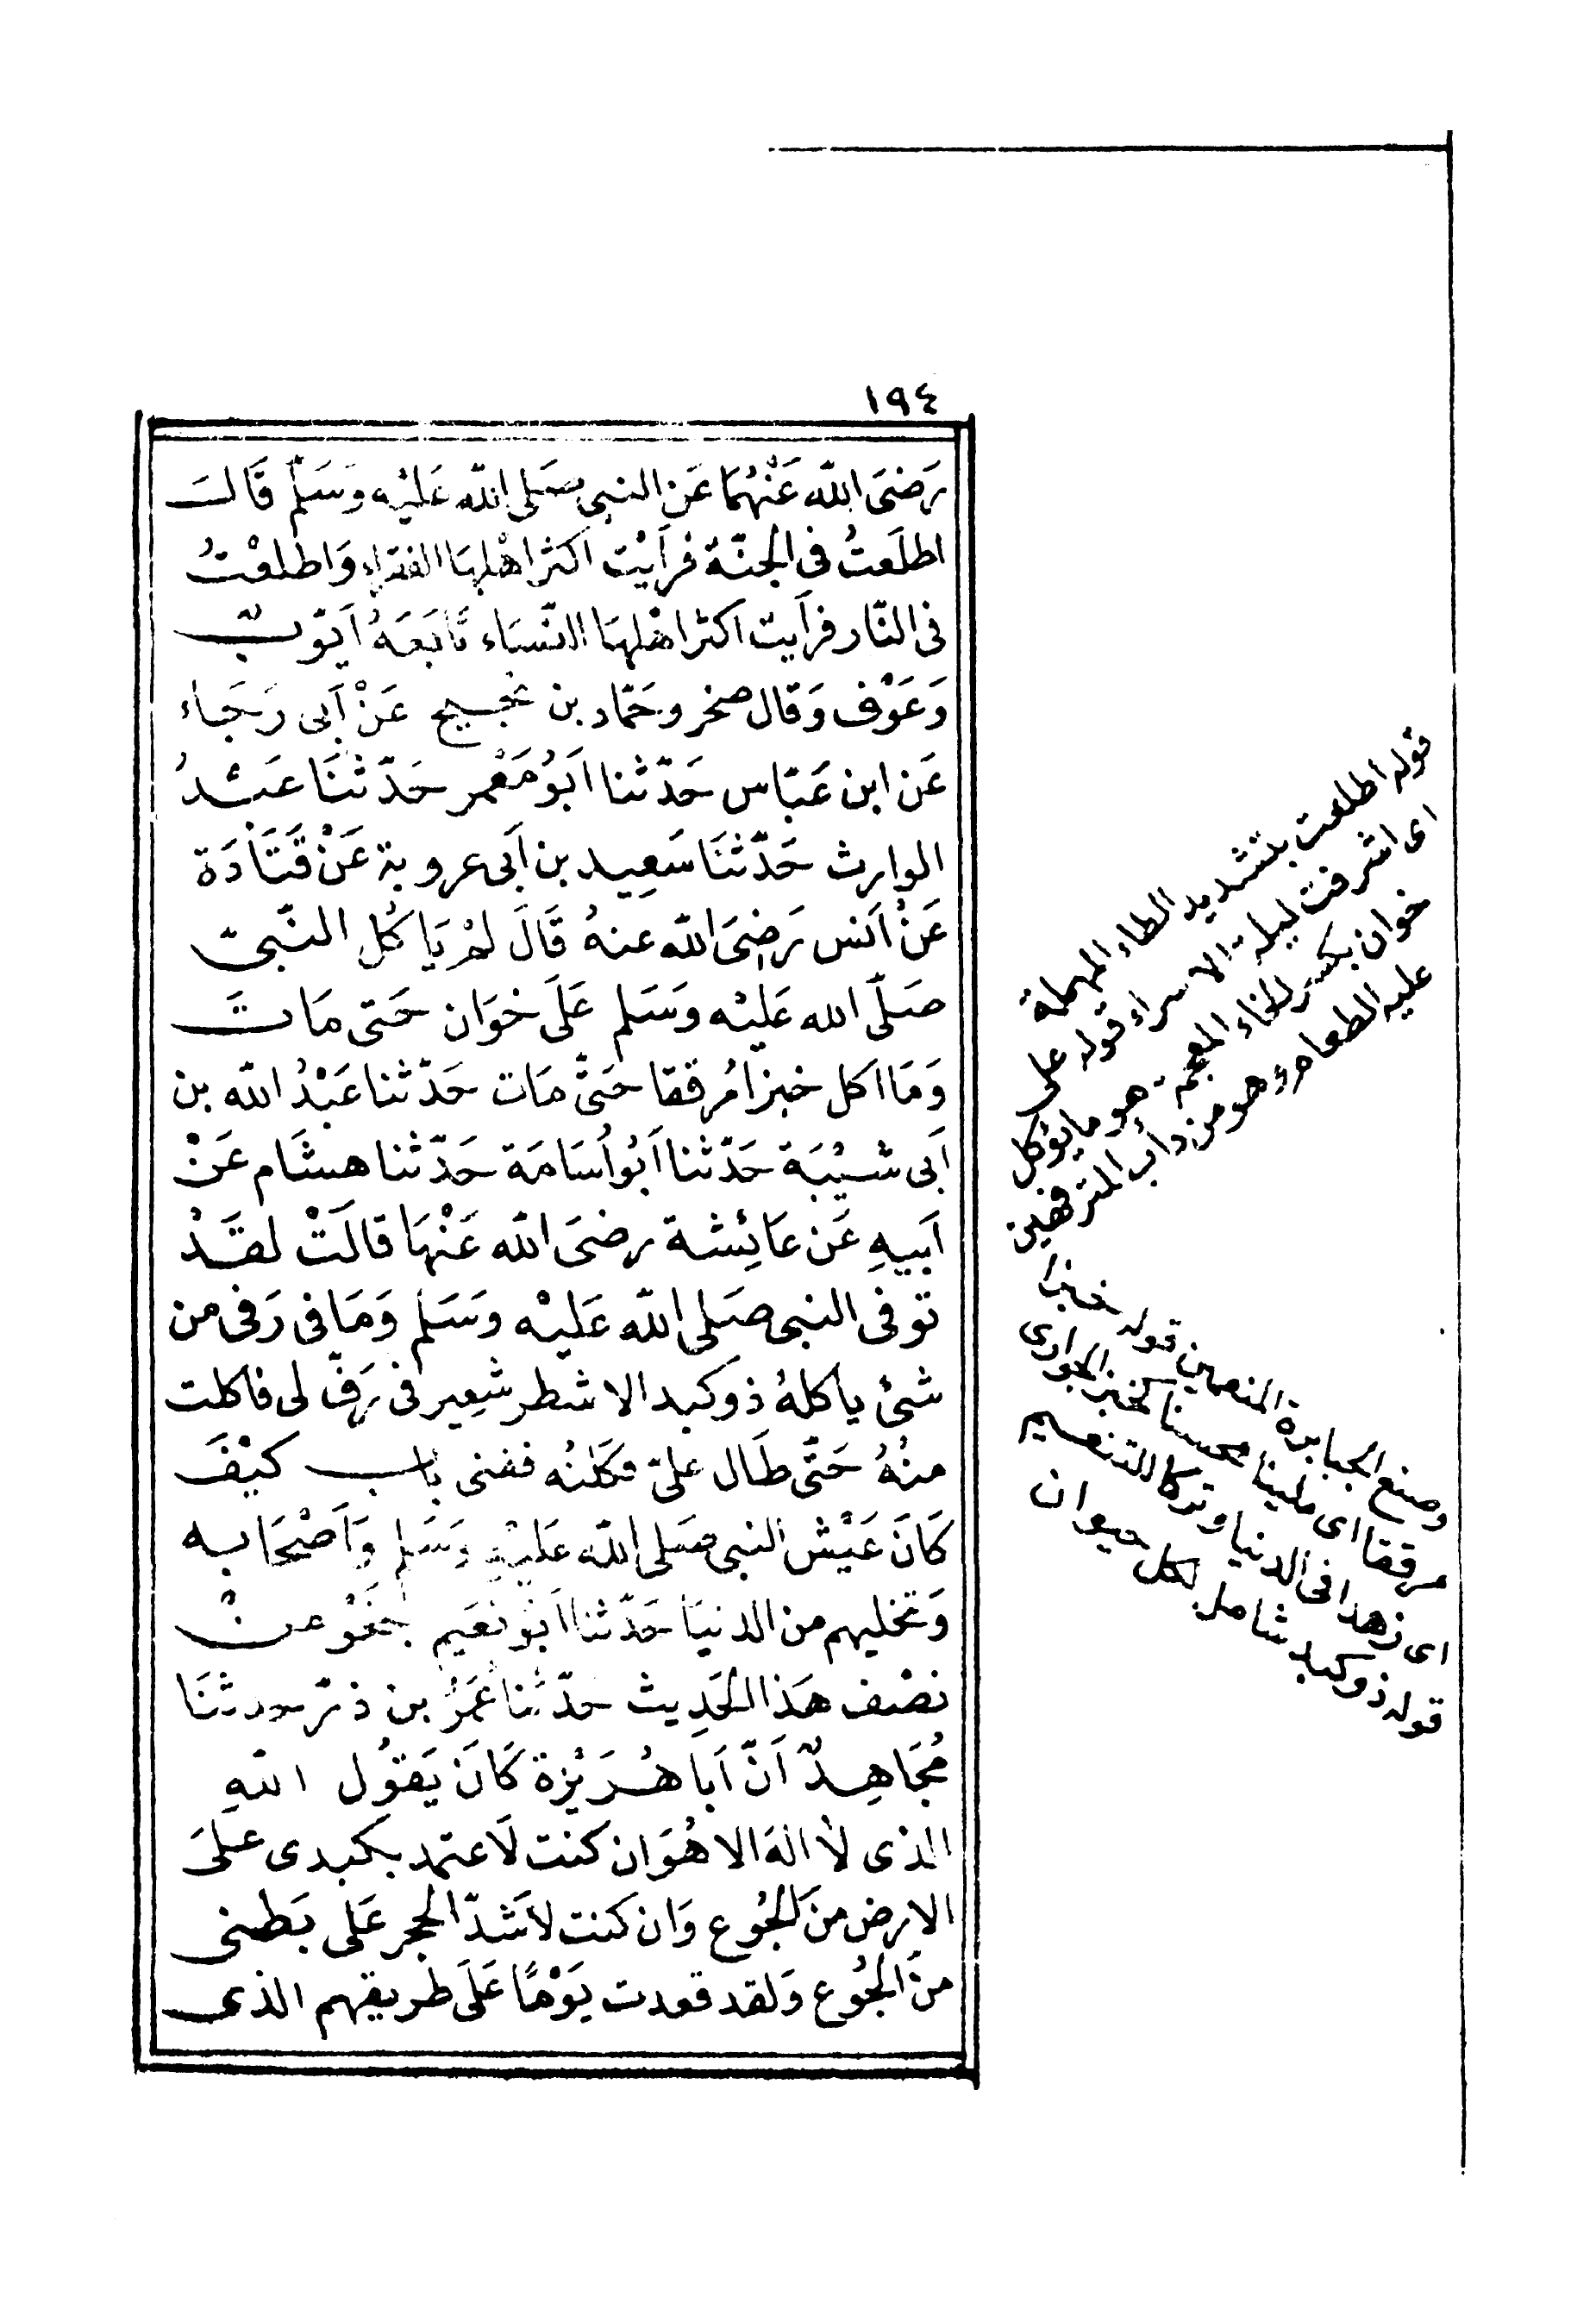 ١٩٤
رَضىَ الله عَنْهُمَا عَن النبى صَلى الله عَليْه وَسَلّم قَالَ
اطلَعتُ فى الجنّة فرأيْت اكثر اهْلِهَا الفقراء وَاطلعْتُ
فى النّار فرأيت اكثر اهْلهَا النّسَاء تَابَعَهُ اَيّوبٌ
وَعَوْف وَقال صخر وحَمّاد بن نجيح عَنْ اَبى رَجَاء
عَن ابن عَبّاس حَدّثنا اَبُو مَعْمر حَدّثنَا عَبْدُ
الوارث حَدّثنَا سَعِيد بن اَبى عروبة عَنْ قَتَادَة
عَنْ اَنس رَضِىَ الله عنهُ قَالَ لمْ يَاكُلِ النّبىّ
صَلّى الله عَليْه وَسَلم عَلَى خوَان حَتى مَاتَ
وَمَا اكل خبزا مُرققا حَتَّى مَات حَدّثنا عَبْدُ الله بن
اَبى شَيْبَة حَدّثنا اَبُو اُسَامَة حَدّثنا هشَام عَنْ
اَبيهِ عَن عَائِشة رضىَ الله عَنْهَا قالَتْ لقَدْ
توفى النبى صَلى الله عَليْه وَسَلم وَمَا فى رَفى من
شئ ياكلهُ ذو كبد الا شطر شعِير فى رَفّ لى فاكلت
منْهُ حَتّى طَال علىّ فكلته ففنى باب كيْفَ
كَانَ عَيْش النبى صَلى الله عَليْهِ وَسَلم وَاَصْحَابه
وَتخليهم من الدنيَا حَدّثنا اَبُو نعَيم بنَحْو منْ
نصْف هَذا الحَدِيث حدّثنا عُمَرُ بن ذرّ حدثنَا
مُجَاهِدٌ اَنّ اَبا هُرَيْرة كَانَ يَقوُل اللهِ
الذى لا الهَ الا هُوَ ان كنت لاَعتمد بكبدى علىَ
الارض منَ الجُوع وَان كنت لاَشدّ الحجر عَلى بَطنى
منَ الجُوع وَلقد قعدت يَوْمًا عَلَى طريقهم الذى
قوله اطلعت بتشديد الطاء المهملة
اى اشرفت ليلة الاسراء قوله على
خوان بكسر الخاء المعجمة هو ما يؤكل
عليه الطعام وهو من دأب المترفهين
وصنع الجبابرة المنعمين قوله خبزا
مرققا اى ملينا محسنا كخبز الحوارى
اى زهدا فى الدنيا وتركا للتنعيم
قوله ذو كبد شامل لكل حيوان